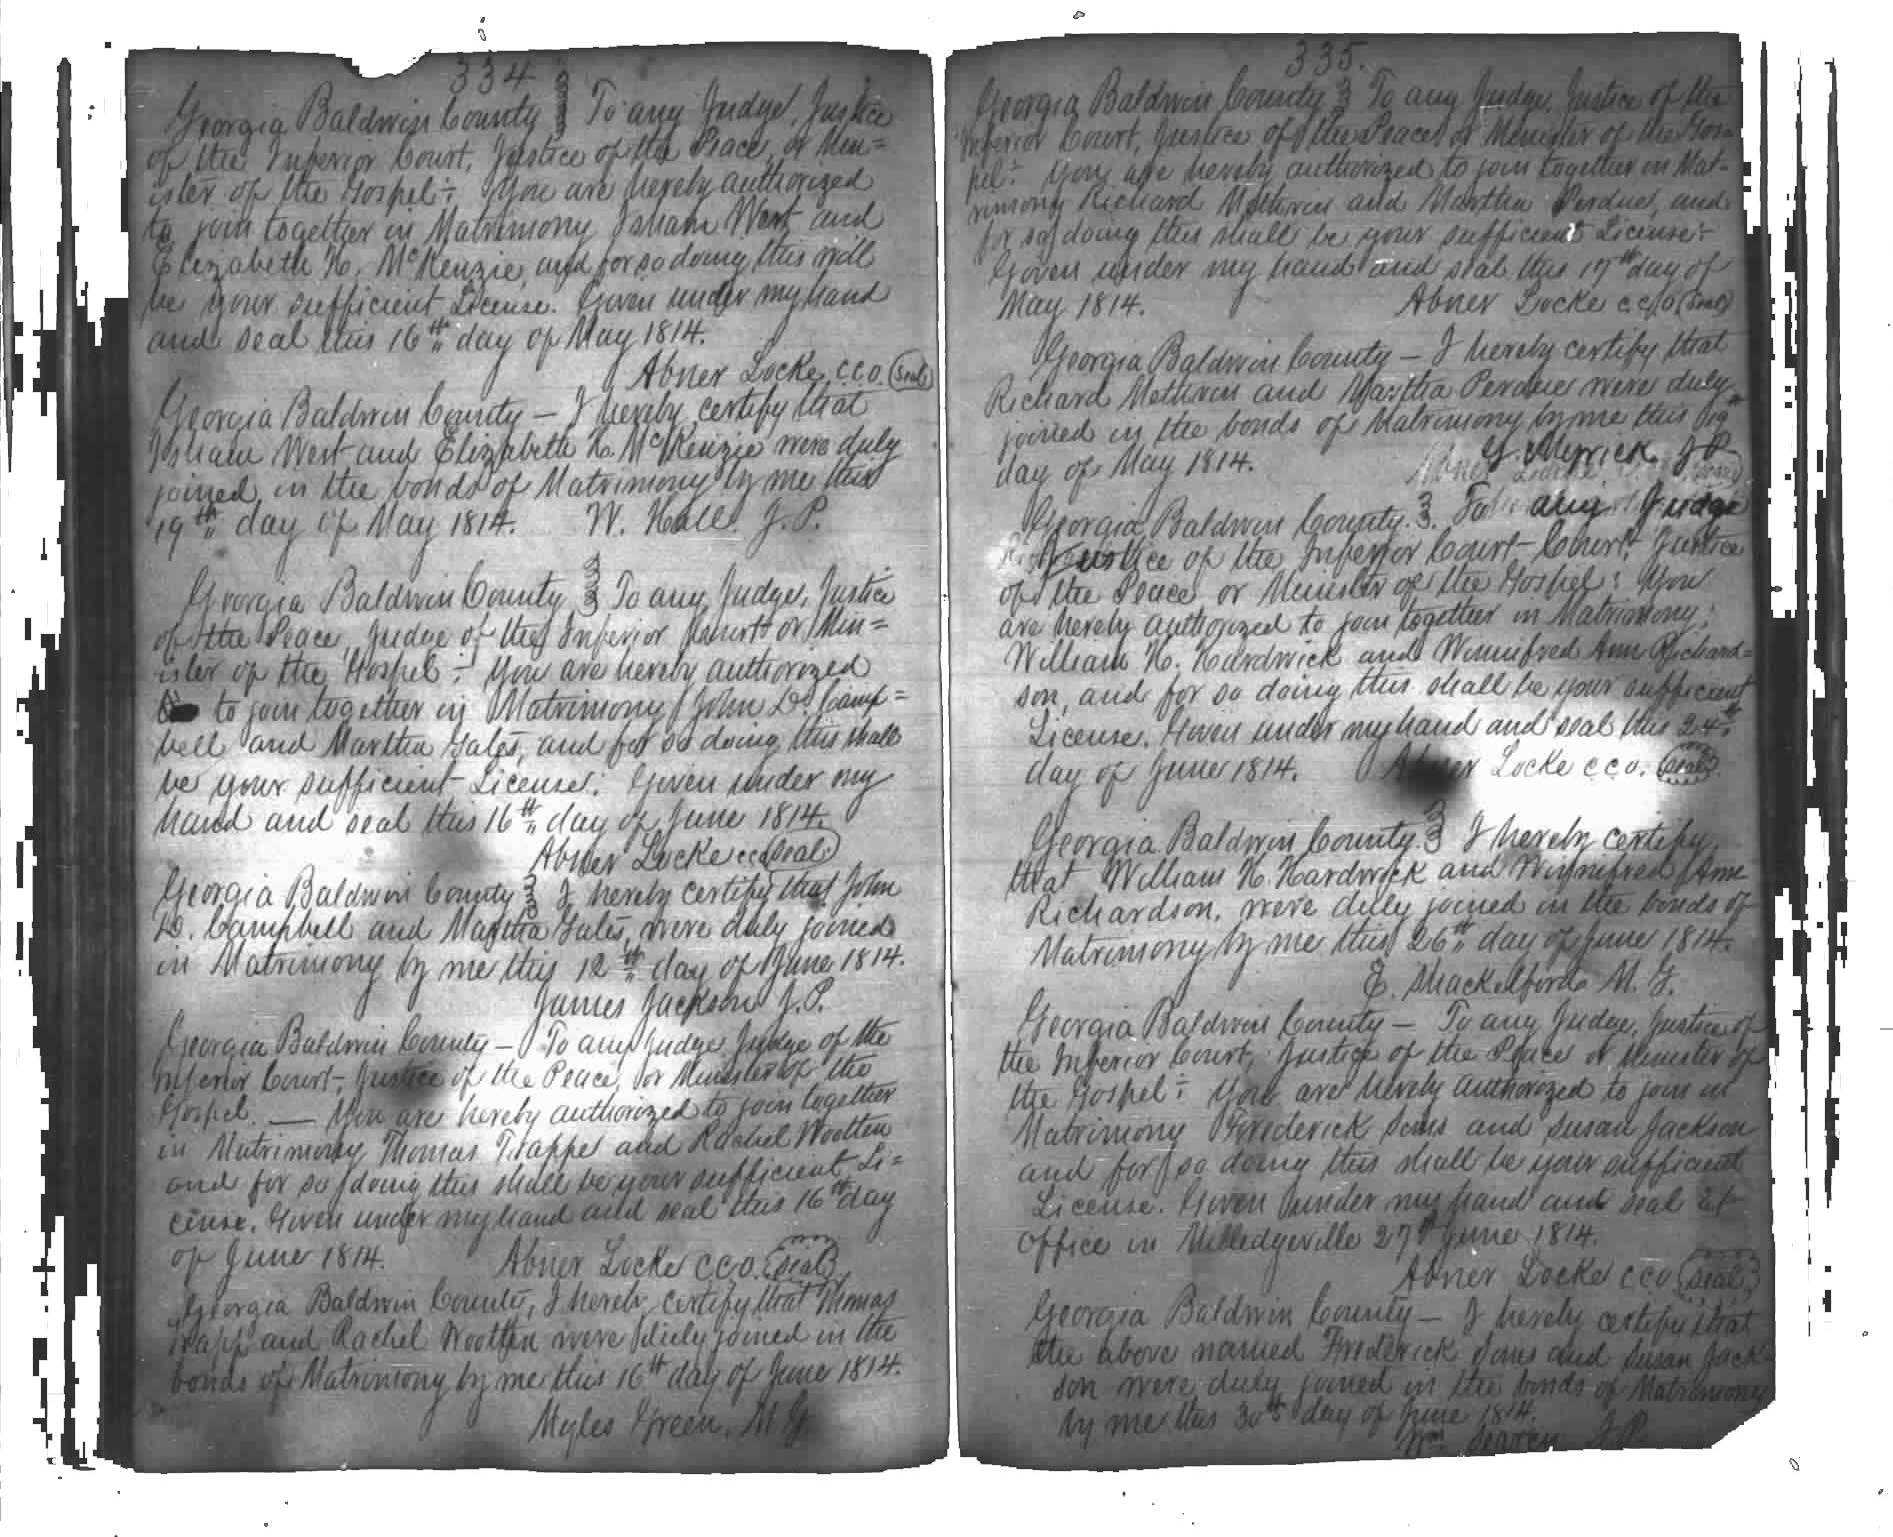 334
Georgia Baldwin County } To any Judge, Justice
of the Inferior Court, Justice of the Peace, or Min=
ister of the Gospel:- You are hereby authorized
to join together in Matrimony Isham West and
Elizabeth H. McKenzie, and for so doing this will
be your sufficient License. Given under my hand
and seal this 16th day of May 1814.
Abner Locke, C.C.O. (Seal)
Georgia Baldwin County — I hereby certify that
Isham West and Elizabeth H. McKenzie were duly
joined in the bonds of Matrimony by me this
19th day of May 1814. W. Hall. J.P.
Georgia Baldwin County } To any Judge, Justice
of the Peace, Judge of the Inferior Court or Min=
ister of the Gospel:- You are hereby authorized
to join together in Matrimony John D. Camp=
bell and Martha Gates, and for so doing this shall
be your sufficient License: Given under my
hand and seal this 16th day of June 1814.
Abner Locke cco (seal)
Georgia Baldwin County } I hereby certify that John
D. Campbell and Martha Gates, were duly joined
in Matrimony by me this 12th day of June 1814.
James Jackson J.P.
Georgia Baldwin County — To any Judge Judge of the
Inferior Court, Justice of the Peace, or Minister of the
Gospel. — You are hereby authorized to join together
in Matrimony Thomas Trappe and Rachel Wootten
and for so doing this shall be your sufficient Li=
cense. Given under my hand and seal this 16th day
of June 1814. Abner Locke C.C.O. (seal)
Georgia Baldwin County, I hereby certify that Thomas
Trapp and Rachel Wootten were duly joined in the
bonds of Matrimony by me this 16th day of June 1814.
Myles Green, M.G.
335.
Georgia Baldwin County } To any Judge, Justice of the
Inferior Court, Justice of the Peace, or Minister of the Gos=
pel:- You are hereby authorized to join together in Mat-
rimony Richard Methvin and Martha Perdue, and
for so doing this shall be your sufficient License:-
Given under my hand and seal this 17th day of
May 1814. Abner Locke c.c.o. (Seal)
Georgia Baldwin County — I hereby certify that
Richard Methvin and Martha Perdue were duly
joined in the bonds of Matrimony by me this
day of May 1814. G. Myrick J.P.
Georgia Baldwin County }. To any Judge
Justice of the Inferior Court Court, Justice
of the Peace or Minister of the Gospel: You
are hereby authorized to join together in Matrimony;
William H. Hardwick and Winnifred Ann Richard=
son, and for so doing this shall be your sufficient
License. Given under my hand and seal this 24th
day of June 1814. Abner Locke c.c.o. (seal)
Georgia Baldwin County } I hereby certify
that William H. Hardwick and Winnifred Ann
Richardson, were duly joined in the bonds of
Matrimony by me this 26th day of June 1814.
E. Shackelford M.G.
Georgia Baldwin County — To any Judge, Justice of
the Inferior Court, Justice of the Peace or Minister of
the Gospel:- You are hereby authorized to join in
Matrimony Frederick Sims and Susan Jackson
and for so doing this shall be your sufficient
License. Given under my hand and seal at
office in Milledgeville 27th June 1814.
Abner Locke c.c.o. (seal)
Georgia Baldwin County — I hereby certify that
the above named Frederick Sims and Susan Jack
son were duly joined in the bonds of Matrimony
by me this 30th day of June 1814.
Wm. Searcy J.P.